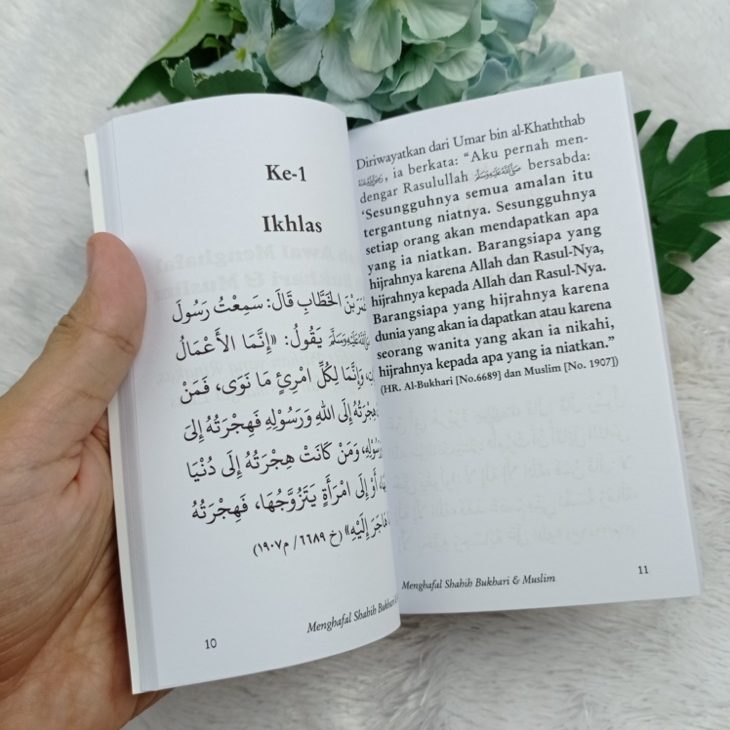 Ke-1
Ikhlas
الْخَطَّابِ قَالَ: سَمِعْتُ رَسُولَ
ﷺ يَقُولُ: «إِنَّمَا الْأَعْمَالُ
وَإِنَّمَا لِكُلِّ امْرِئٍ مَا نَوَى، فَمَنْ
إِلَى اللهِ وَرَسُولِهِ فَهِجْرَتُهُ إِلَى
وَمَنْ كَانَتْ هِجْرَتُهُ إِلَى دُنْيَا
أَوْ إِلَى امْرَأَةٍ يَتَزَوَّجُهَا، فَهِجْرَتُهُ
إِلَيْهِ» (خ ٦٦٨٩/ م١٩٠٧)
Menghafal Shahih Bukhari
10
Diriwayatkan dari Umar bin al-Khaththab
, ia berkata: “Aku pernah men-
dengar Rasulullah ﷺ bersabda:
‘Sesungguhnya semua amalan itu
tergantung niatnya. Sesungguhnya
setiap orang akan mendapatkan apa
yang ia niatkan. Barangsiapa yang
hijrahnya karena Allah dan Rasul-Nya,
hijrahnya kepada Allah dan Rasul-Nya.
Barangsiapa yang hijrahnya karena
dunia yang akan ia dapatkan atau karena
seorang wanita yang akan ia nikahi,
hijrahnya kepada apa yang ia niatkan.”
(HR. Al-Bukhari [No.6689] dan Muslim [No. 1907])
Menghafal Shahih Bukhari & Muslim
11